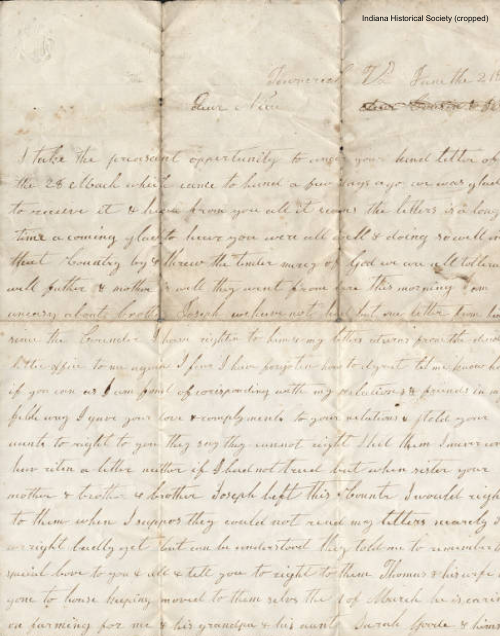 Indiana Historical Society (cropped)
Va June the 21
Dear Niece
I take the pleasant opportunity to your kind letter of
the 28 which came to hand a few days ago we was glad
to receive it & hear from you all it the letters is a long
time a coming glad to heare you were all well & doing so well in
that Country by & threw the tinder mercy of God we are all
well father & mother is well they went from here this morning I am
uneasy about brother Joseph we have not had but one letter from
I have righten to him & my letters returns from the
letter office to me again I fear I have forgotten how to drect tel me know
if you can as I am fond of corisponding with my relations & friends in
way I gave your love & complyments to your relations & told your
aunts to right to you they say they cannot right I tell them I never
riten a letter neither if I had not tried but when sister your
mother & brother & brother Joseph left this County I would
to them when I suppos they could not read my letters
right badly yet but can be understood they told me to
special love to you & all & tell you to right to them Thomas & his wife
gone to house keeping moved to them selvs the 1 of March he is
on farming for me & his grandpa & his aunt Sarah & him